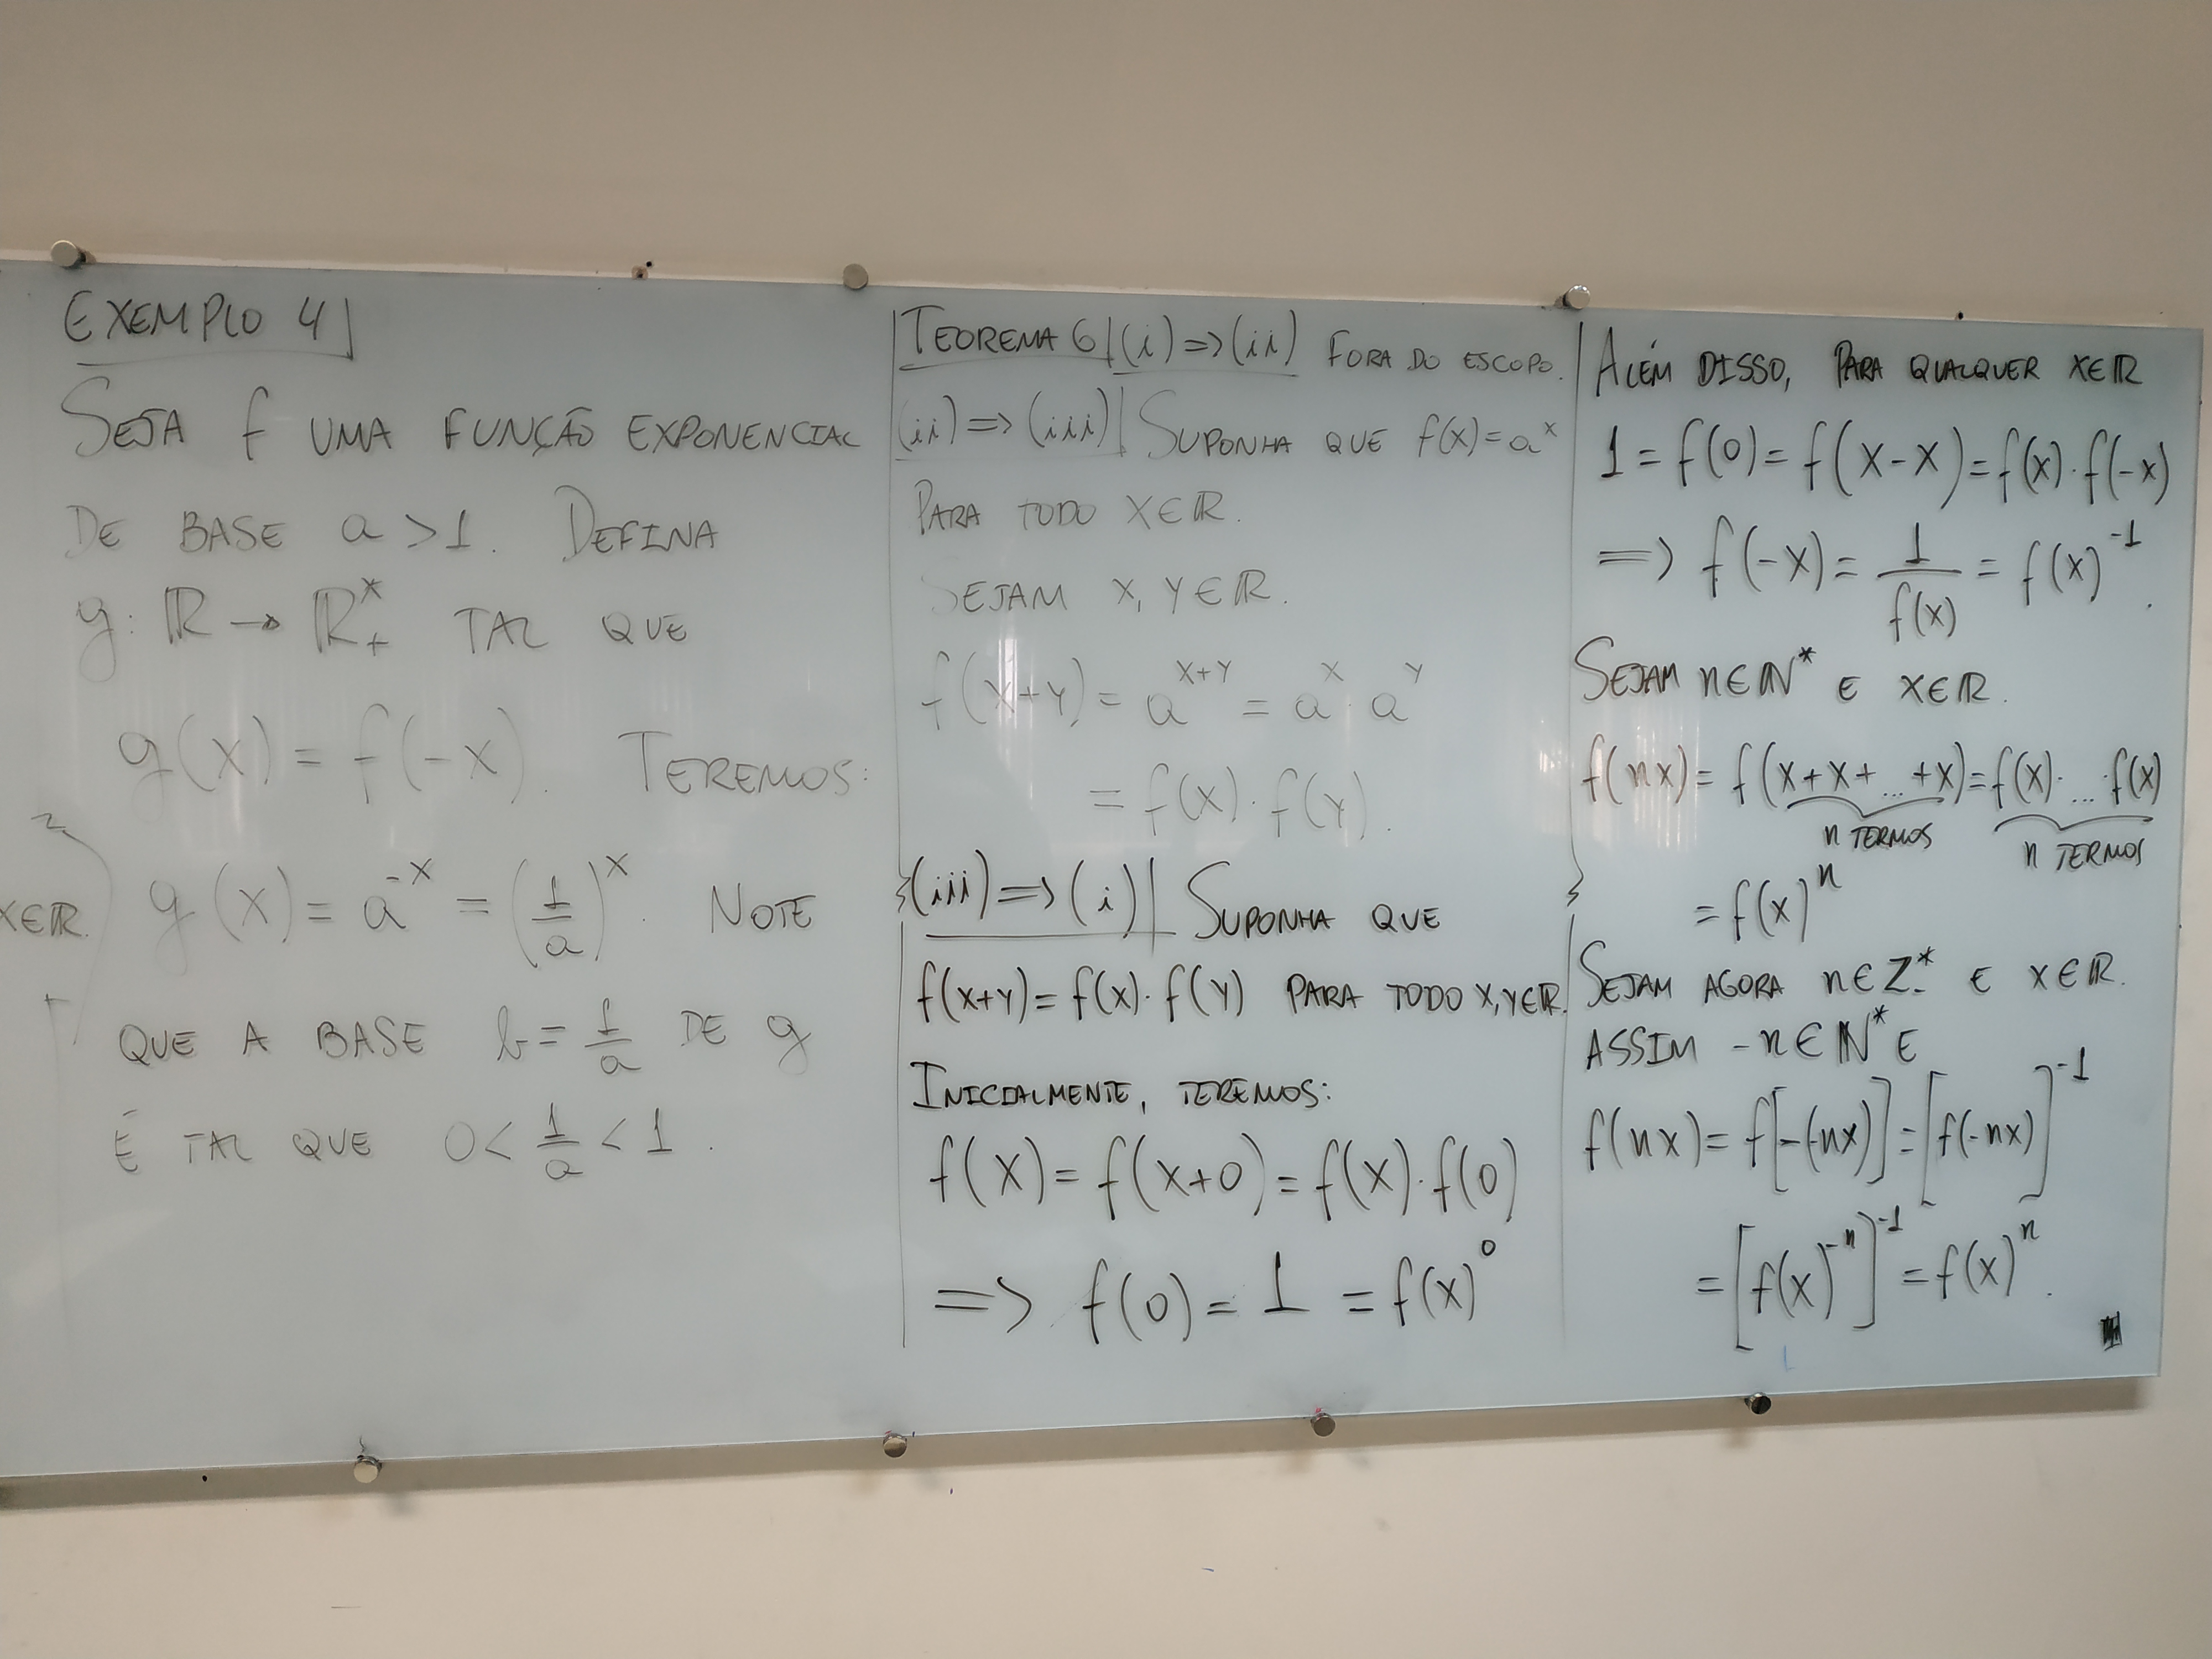 EXEMPLO 4
SEJA f UMA FUNÇÃO EXPONENCIAL
DE BASE a > 1. DEFINA
g: ℝ → ℝ₊* TAL QUE
g(x) = f(-x). TEREMOS:
x∈ℝ.
g(x) = a^-x = (1/a)^x. NOTE
QUE A BASE b = 1/a DE g
É TAL QUE 0 < 1/a < 1.
TEOREMA 6 (i) => (ii) FORA DO ESCOPO.
(ii) => (iii) SUPONHA QUE f(x) = a^x
PARA TODO x∈ℝ.
SEJAM x, y∈ℝ.
f(x+y) = a^(x+y) = a^x · a^y
= f(x) · f(y).
(iii) => (i) SUPONHA QUE
f(x+y) = f(x) · f(y) PARA TODO x,y∈ℝ.
INICIALMENTE, TEREMOS:
f(x) = f(x+0) = f(x) · f(0)
=> f(0) = 1 = f(x)^0
ALÉM DISSO, PARA QUALQUER x∈ℝ
1 = f(0) = f(x-x) = f(x) · f(-x)
=> f(-x) = 1/f(x) = f(x)^-1.
SEJAM n∈ℕ* E x∈ℝ.
f(nx) = f(x+x+...+x) = f(x) · ... · f(x)
n TERMOS n TERMOS
= f(x)^n
SEJAM AGORA n∈ℤ₋* E x∈ℝ.
ASSIM -n∈ℕ* E
f(nx) = f[-(-nx)] = [f(-nx)]^-1
= [f(x)^-n]^-1 = f(x)^n.